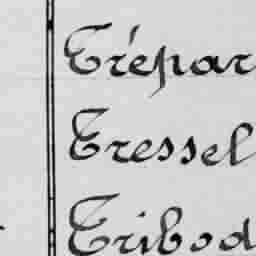 Trépar
Tressel
Tribod